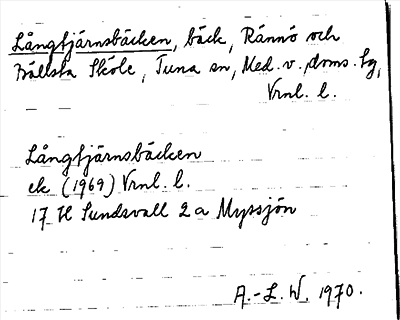 Långtjärnsbäcken, bäck, Rännö och
Bällsta Sköle, Tuna sn, Med. v. doms. tg,
Vrnl. l.
Långtjärnsbäcken
ek (1969) Vrnl. l.
17 H Sundsvall 2 a Myssjön
A.-L. W. 1970.